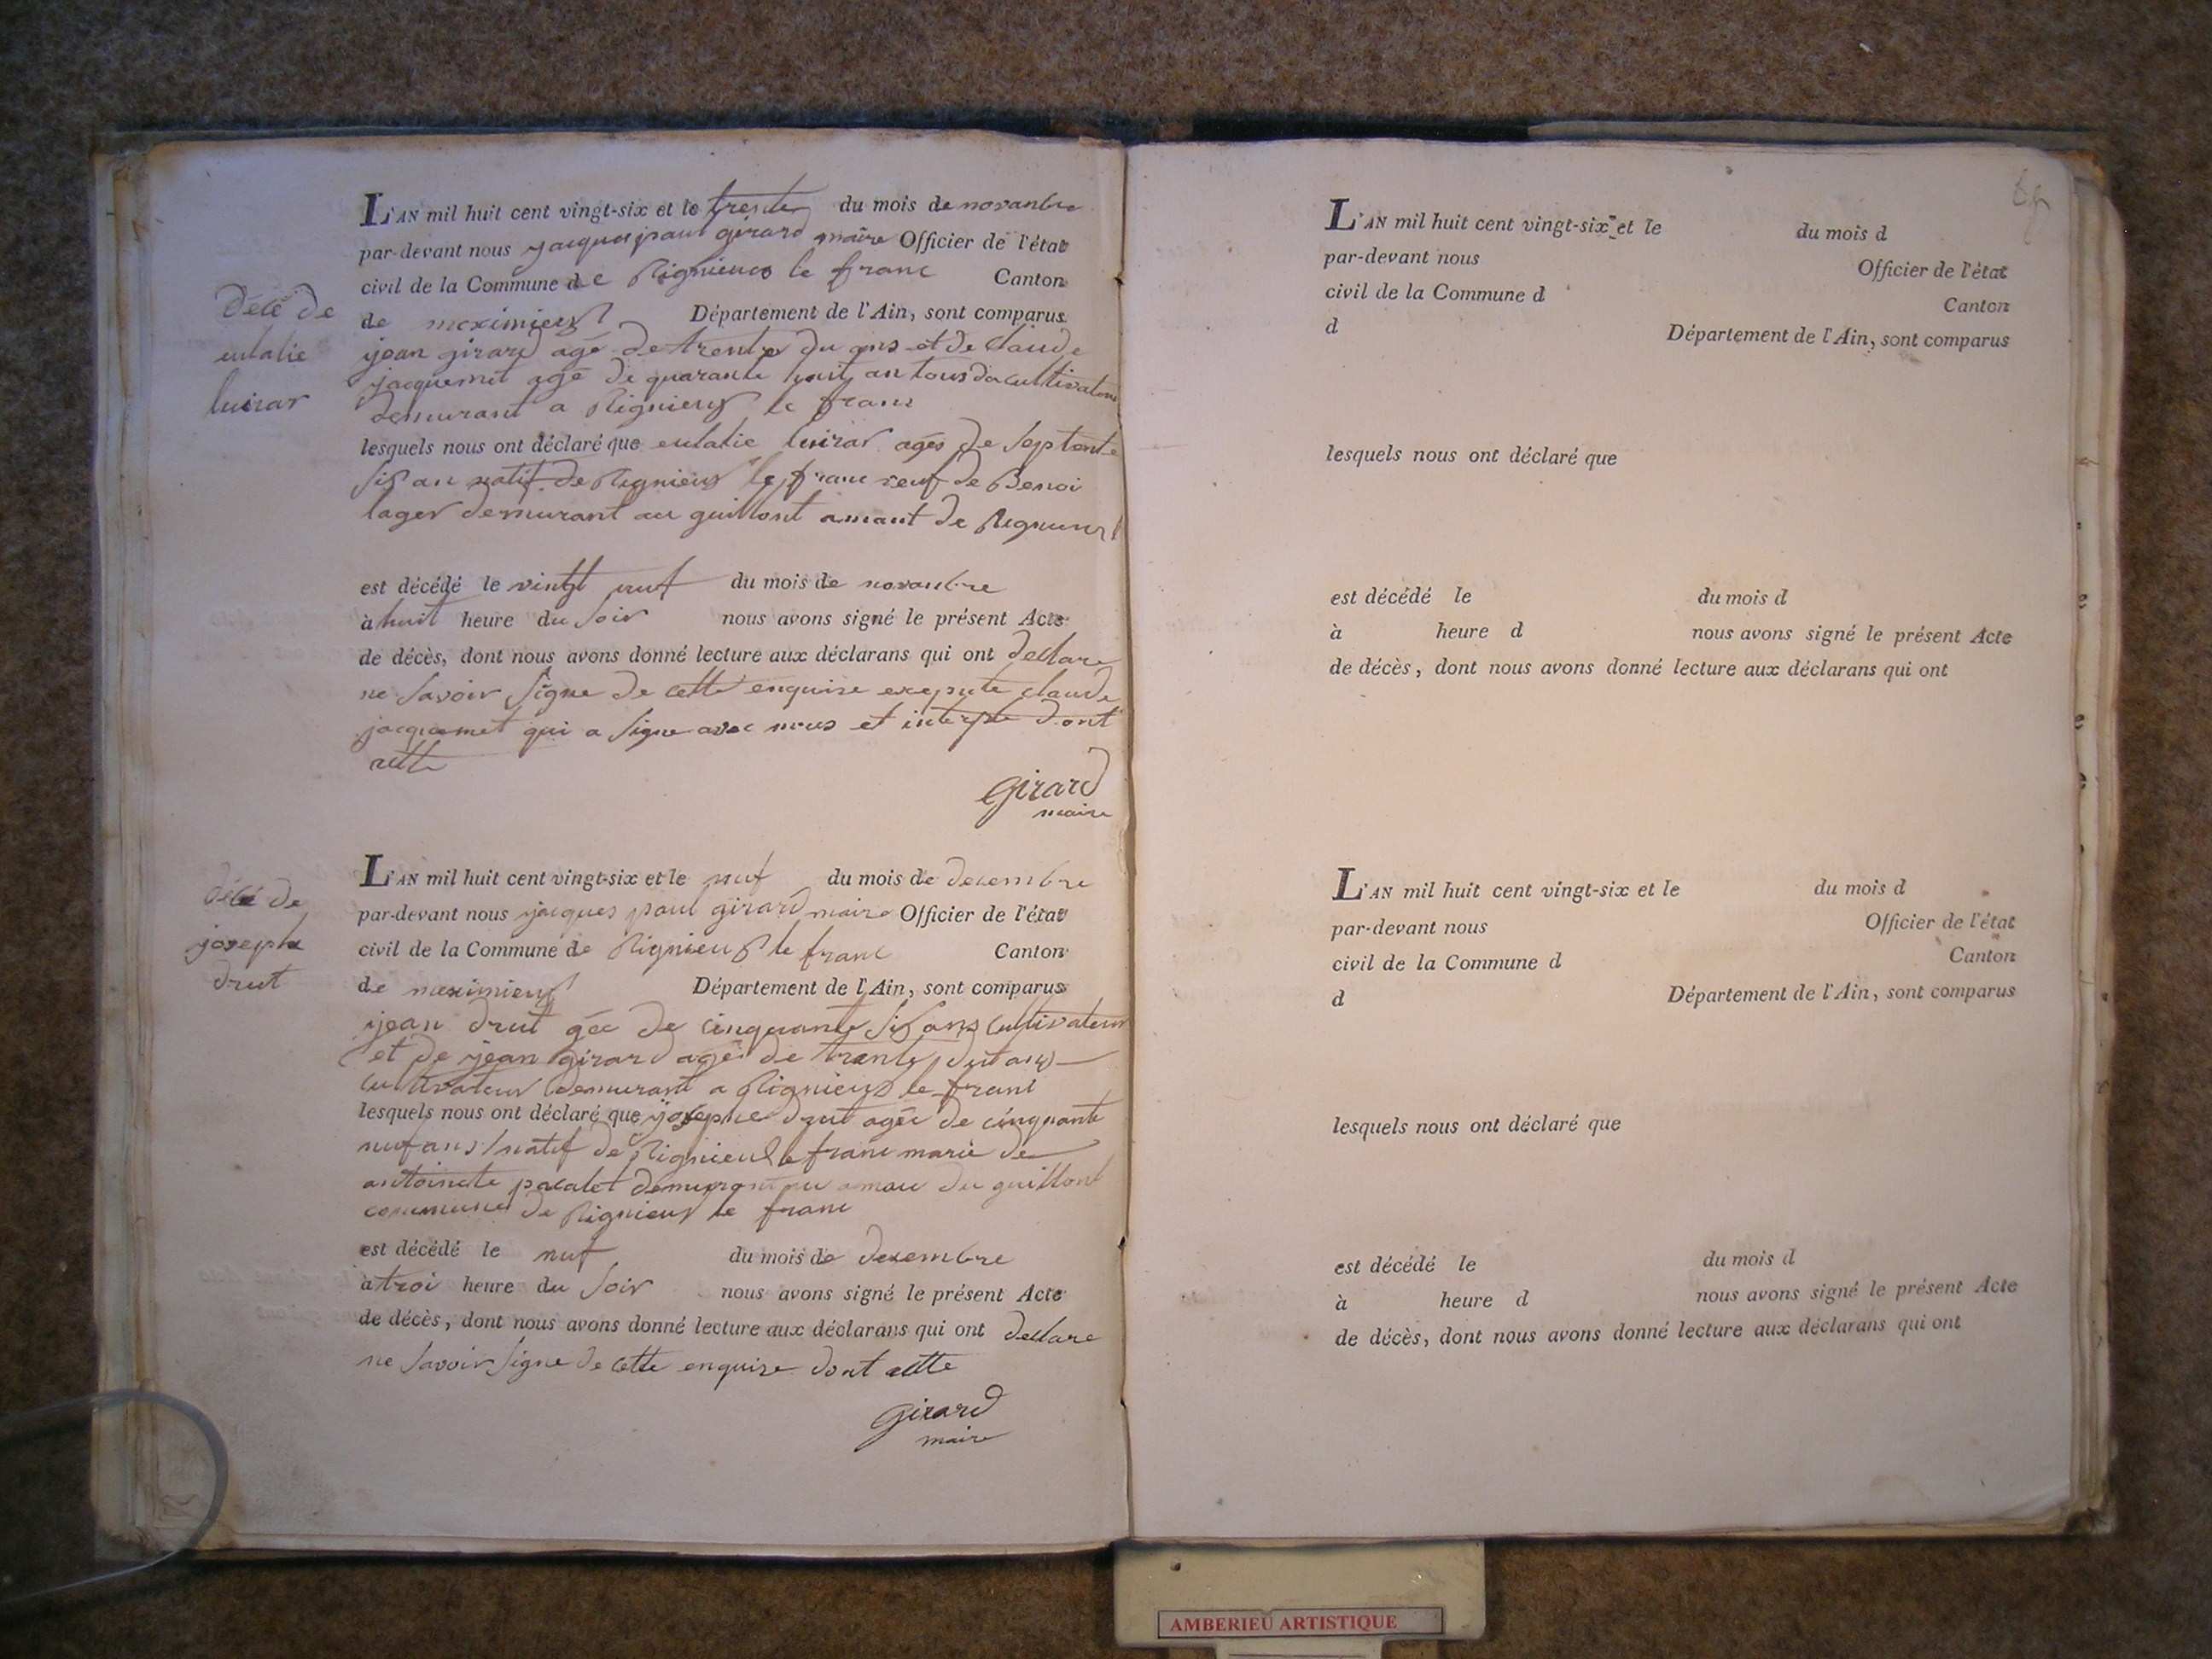 décé de
eulalie
luirar
L'AN mil huit cent vingt-six et le trente du mois de novanbre
par-devant nous jacques paul girard maire Officier de l'état
civil de la Commune de Rignieux le franc Canton
de meximieux Département de l'Ain, sont comparus
jean girard agé de trente du ans et de Claude
jacquemet agé de quarante huit an tous da cultivateur
demurant a Rignieux le franc
lesquels nous ont déclaré que eulalie luirar agés de septente
six an natif de Rignieux le franc veuf de Benoi
lager demurant au guillont amant de Rignieux
est décédé le vingt neuf du mois de novanbre
à huit heure du soir nous avons signé le présent Acte
de décès, dont nous avons donné lecture aux déclarans qui ont declare
ne savoir signe de cette enquise exepute claude
jacquemet qui a signe avec nous et dont
acitte
Girard
maire
décé de
joseph
drut
L'AN mil huit cent vingt-six et le nuf du mois de decembre
par-devant nous jacques paul girard maire Officier de l'état
civil de la Commune de Rignieux le franc Canton
de meximieux Département de l'Ain, sont comparus
jean drut gée de cinquante six ans cultivateur
et de jean girard agés de trante deu ans
cultivateur demurant a Rignieux le franc
lesquels nous ont déclaré que josephe drut agée de cinquante
nuf ans natif de Rignieux le franc marié de
antoinete pacalet demurant au amau du guillont
commune de Rignieux le franc
est décédé le nuf du mois de decembre
à troi heure du soir nous avons signé le présent Acte
de décès, dont nous avons donné lecture aux déclarans qui ont declare
ne savoir signe de cette enquise dont acitte
Girard
maire
L'AN mil huit cent vingt-six et le du mois d
par-devant nous Officier de l'état
civil de la Commune d Canton
d Département de l'Ain, sont comparus
lesquels nous ont déclaré que
est décédé le du mois d
à heure d nous avons signé le présent Acte
de décès, dont nous avons donné lecture aux déclarans qui ont
L'AN mil huit cent vingt-six et le du mois d
par-devant nous Officier de l'état
civil de la Commune d Canton
d Département de l'Ain, sont comparus
lesquels nous ont déclaré que
est décédé le du mois d
à heure d nous avons signé le présent Acte
de décès, dont nous avons donné lecture aux déclarans qui ont
AMBERIEU ARTISTIQUE